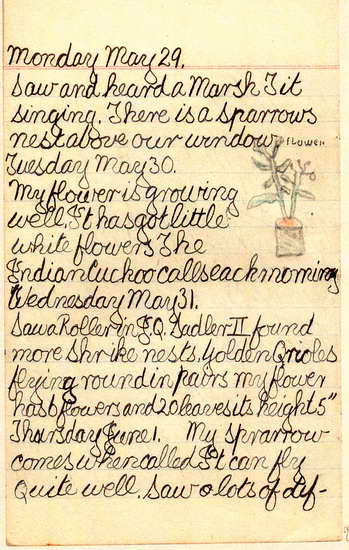 Monday May 29.
Saw and heard a Marsh Tit
singing. There is a sparrows
nest above our window.
flower
Tuesday May 30.
My flower is growing
well. It has got little
white flowers The
Indian Cuckoo calls each morning
Wednesday May 31.
Saw a Roller in J.Q. Sadler II found
more shrike nests. Golden Orioles
flying round in pairs my flower
has 6 flowers and 20 leaves its height 5"
Thursday June 1. My sprarrow
comes when called It can fly
quite well. Saw lots of dif-